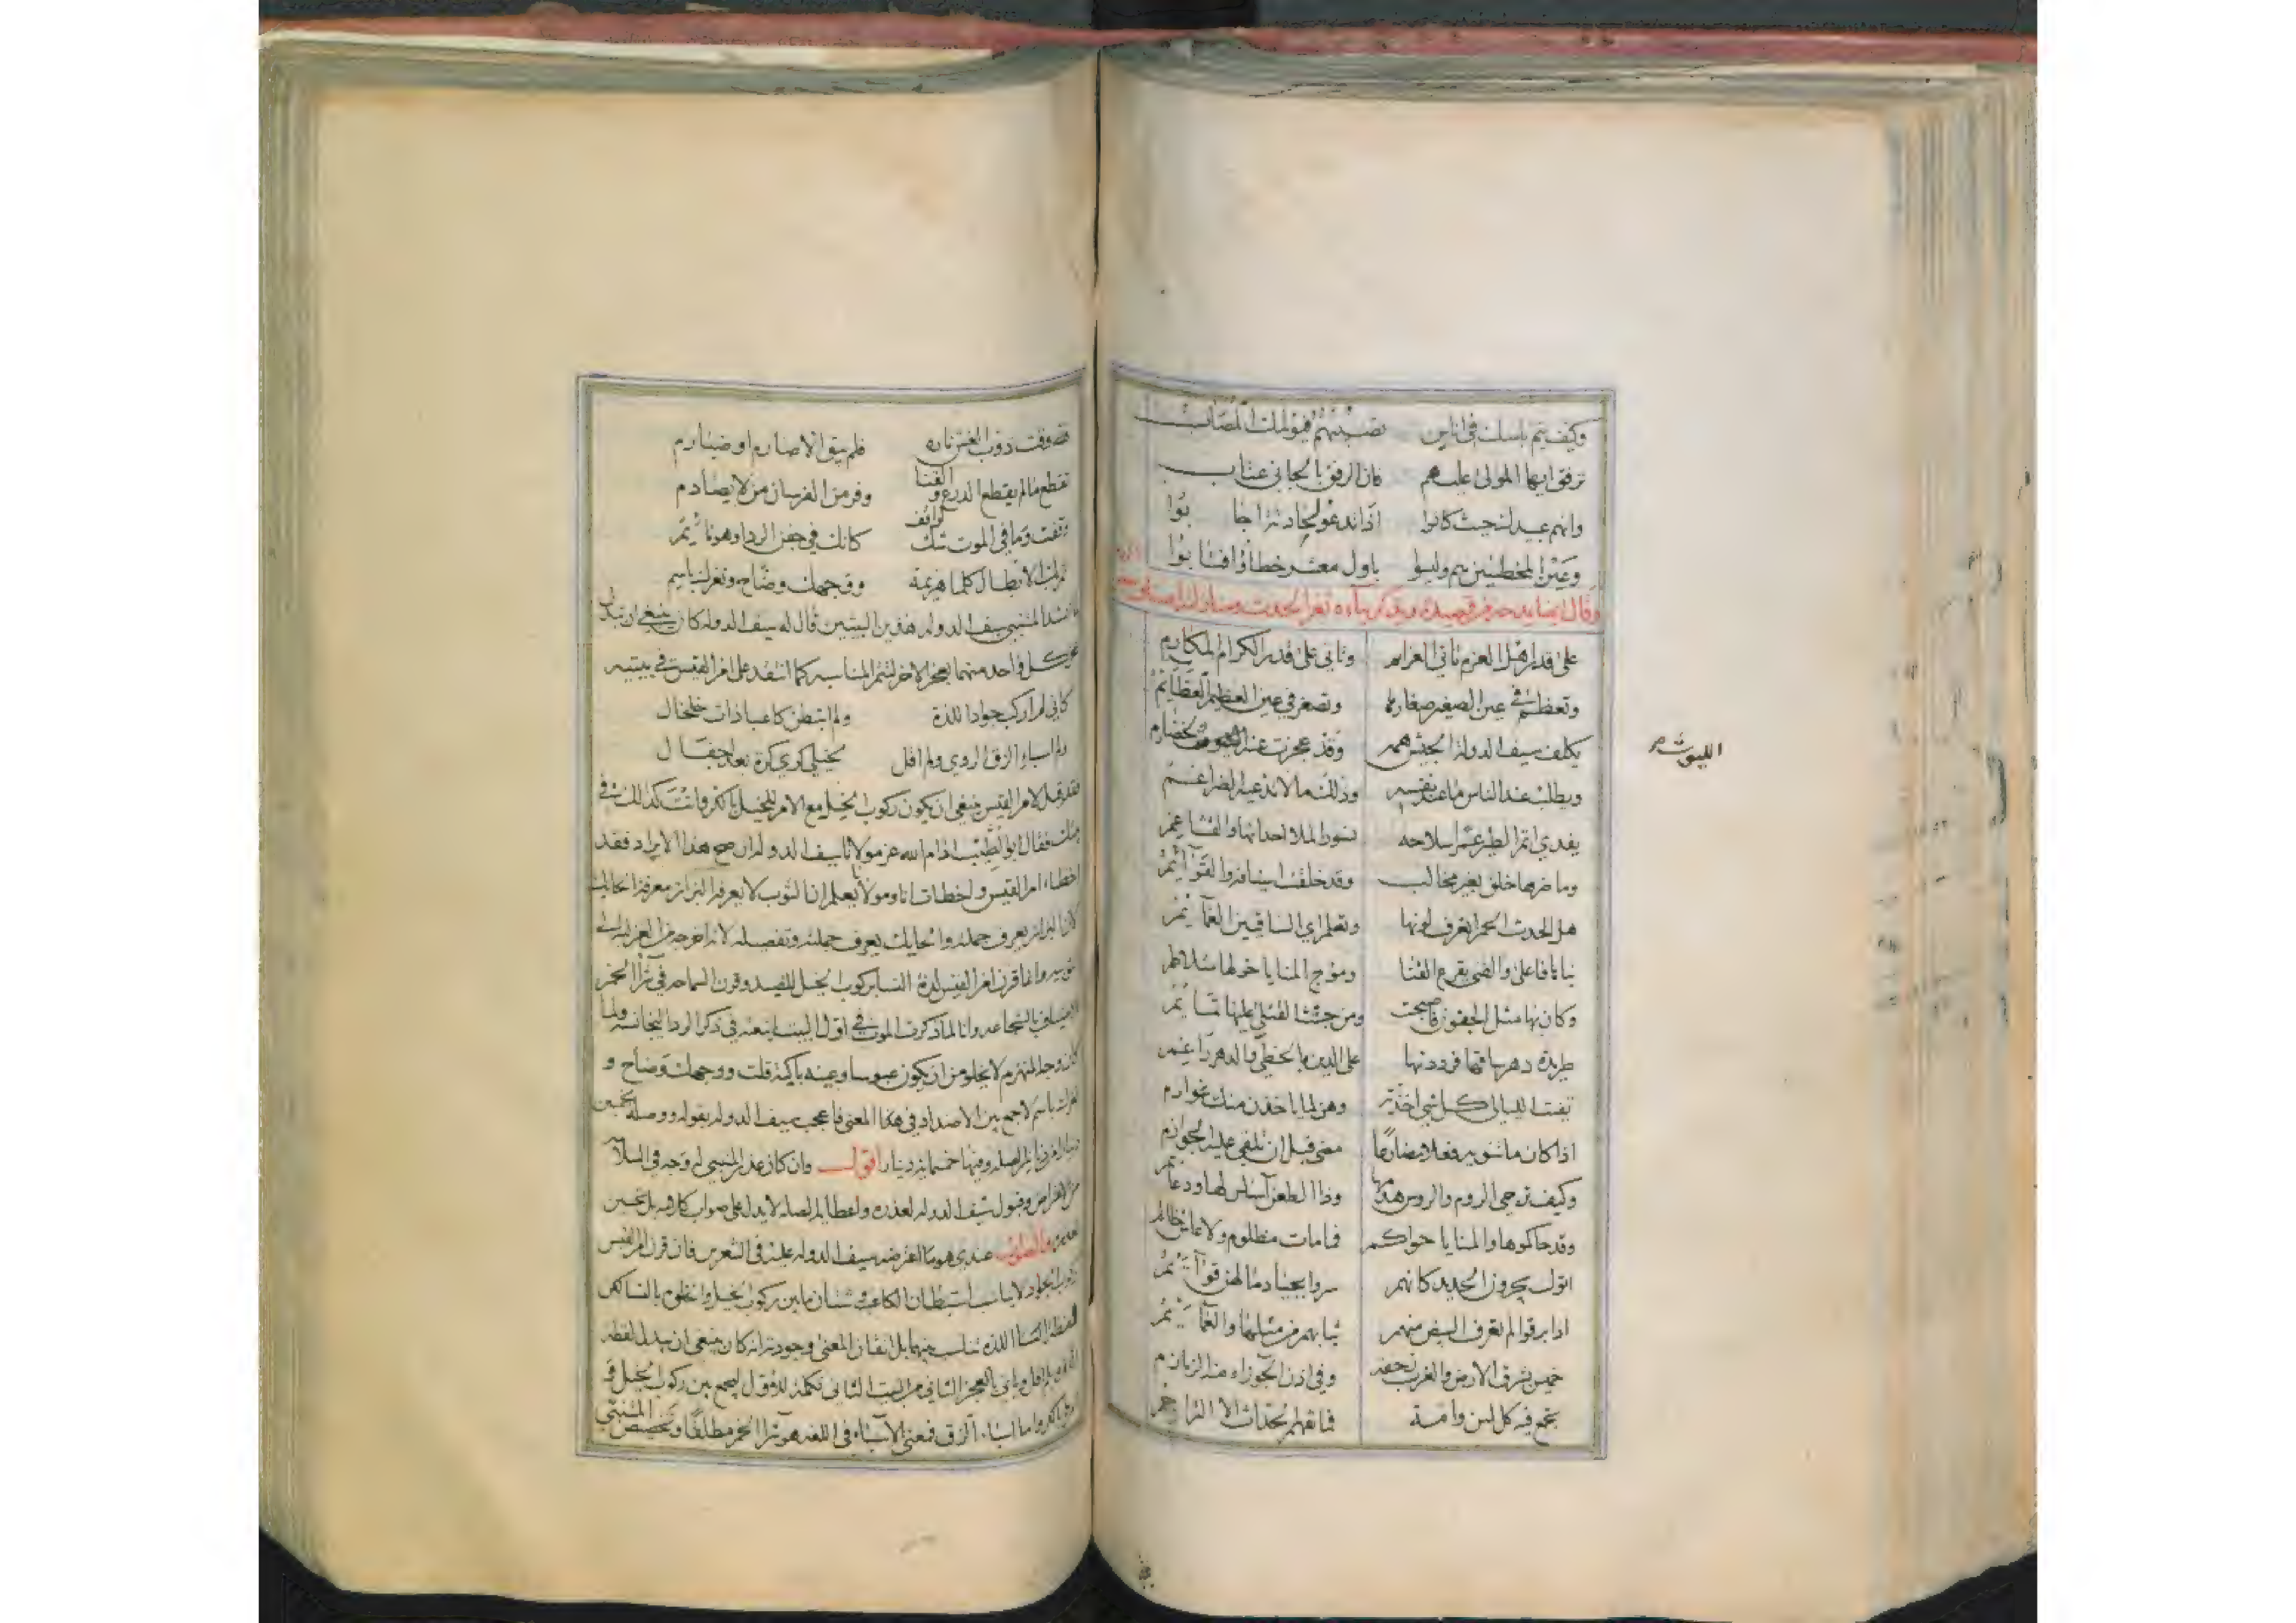 وكيف يتم باسك في اناس تصيبهم فيولمك المصاب
ترفق ايها المولى عليهم فان الرفق بالجاني عتاب
وانهم عبيدك حيث كانوا اذا تدعو لحادثة اجابوا
وعين المخطئين هم وليسوا باول معشر خطاؤا فتابوا
وقال ايضا يمدحه من قصيدة ويذكر بناءه ثغر الحدث
على قدر اهل العزم تاتي العزايم وتاتي على قدر الكرام المكارم
وتعظم في عين الصغير صغارها وتصغر في عين العظيم العظايم
يكلف سيف الدولة الجيش همه وقد عجزت عنه الجيوش الخضارم
الليوث
ويطلب عند الناس ما عند نفسه وذلك ما لا تدعيه الضراغم
يفدي اتم الطير عمرا سلاحه نسور الملا احداثها والقشاعم
وما ضرها خلق بغير مخالب وقد خلقت اسيافه والقوايم
هل الحدث الحمرا تعرف لونها وتعلم اي الساقيين الغمايم
بناها فاعلى والقنى يقرع القنا وموج المنايا حولها متلاطم
وكان بها مثل الجنون فاصبحت ومن جثث القتلى عليها تمايم
طريدة دهر ساقها فرددتها على الدين بالخطي والدهر راغم
تفيت الليالي كل شي اخذته وهن لما ياخذن منك غوارم
اذا كان ما تنويه فعلا مضارعا مضى قبل ان تلقى عليه الجوازم
وكيف ترجي الروم والروس هدمها وذا الطعن آساس لها ودعايم
وقد حاكموها والمنايا حواكم فما مات مظلوم ولا عاش ظالم
اتوك يجرون الحديد كانهم سروا بجياد ما لهن قوايم
اذا برقوا لم تعرف البيض منهم ثيابهم من مثلها والعمايم
خميس بشرق الارض والغرب زحفه وفي اذن الجوزاء منه الزمازم
تجمع فيه كل لسن وامة فما تفهم الحداث الا التراجم
فلله وقت ذوب الغش ناره فلم يبق الا صارم او ضبارم
تقطع ما لم يقطع الدرع والقنا وفر من الفرسان من لا يصادم
وقفت وما في الموت شك لواقف كانك في جفن الردا وهو نايم
تمر بك الابطال كلما هزيمة ووجهك وضاح وثغرك باسم
المتنبي سيف الدولة هذين البيتين قال له سيف الدولة كان ينبغي ان تبدل
عجز كل واحد منهما بعجز الاخر لتتم المناسبة كما انتقد على امرا القيس في بيتيه
كاني لم اركب جوادا للذة ولم اتبطن كاعبا ذات خلخال
ولم اسباء الزق الروي ولم اقل لخيلي كري كرة بعد اجفال
فقد قيل لامرا القيس ينبغي ان يكون ركوب الخيل مع الامر للخيل بالكر وانت كذلك في
فقال ابو الطيب ادام الله عز مولانا سيف الدولة ان صح هذا الايراد فقد
اخطاء امرا القيس واخطات انا ومولانا يعلم ان الثوب لا يعرفه البزاز معرفة الحايك
لان البزاز يعرف جملته والحايك يعرف جملته وتفصيله لانه اخرجه من الغزلية الى
الثوبية وانما قرن امرا القيس لذة النسا بركوب الخيل للصيد وقرن السماحة في شرا الخمر
للاضياف بالشجاعة وانا لما ذكرت الموت في اول البيت اتبعته في ذكر الردا ليجانسه ولما
كان وجه المنهزم لا يخلو من ان يكون عبوسا وعينه باكية قلت ووجهك وضاح و
ثغرك باسم لاجمع بين الاضداد في هذا المعنى فاعجب سيف الدولة بقوله ووصله بخمسين
دينارا من دنانير الصلة وفيها خمسماية دينار اقول وان كان عذر المتنبي له وجه في السلامة
من الاعتراض وقبول سيف الدولة لعذره واعطايه الصلة لا يدل على صواب كلامه بل تحسين
والصواب عندي هو ما اعترضه سيف الدولة عليه في الشعرين فان قرن امرا القيس
ركوب الجواد لا يناسب استبطان الكاعب وشتان ما بين ركوب الخيل والخلوة بالنسا
اللذة تناسب بينهما بل اتقان المعنى وجودته انه كان ينبغي ان يبدل لفظة
ولم اقل وياتي بالعجز الثاني من البيت الثاني تكملة للاول ليجمع بين ركوب الخيل
واما اسباء الزق فمعنى الاسباء في اللغة هو شرا الخمر مطلقا وتخصيص المتنبي